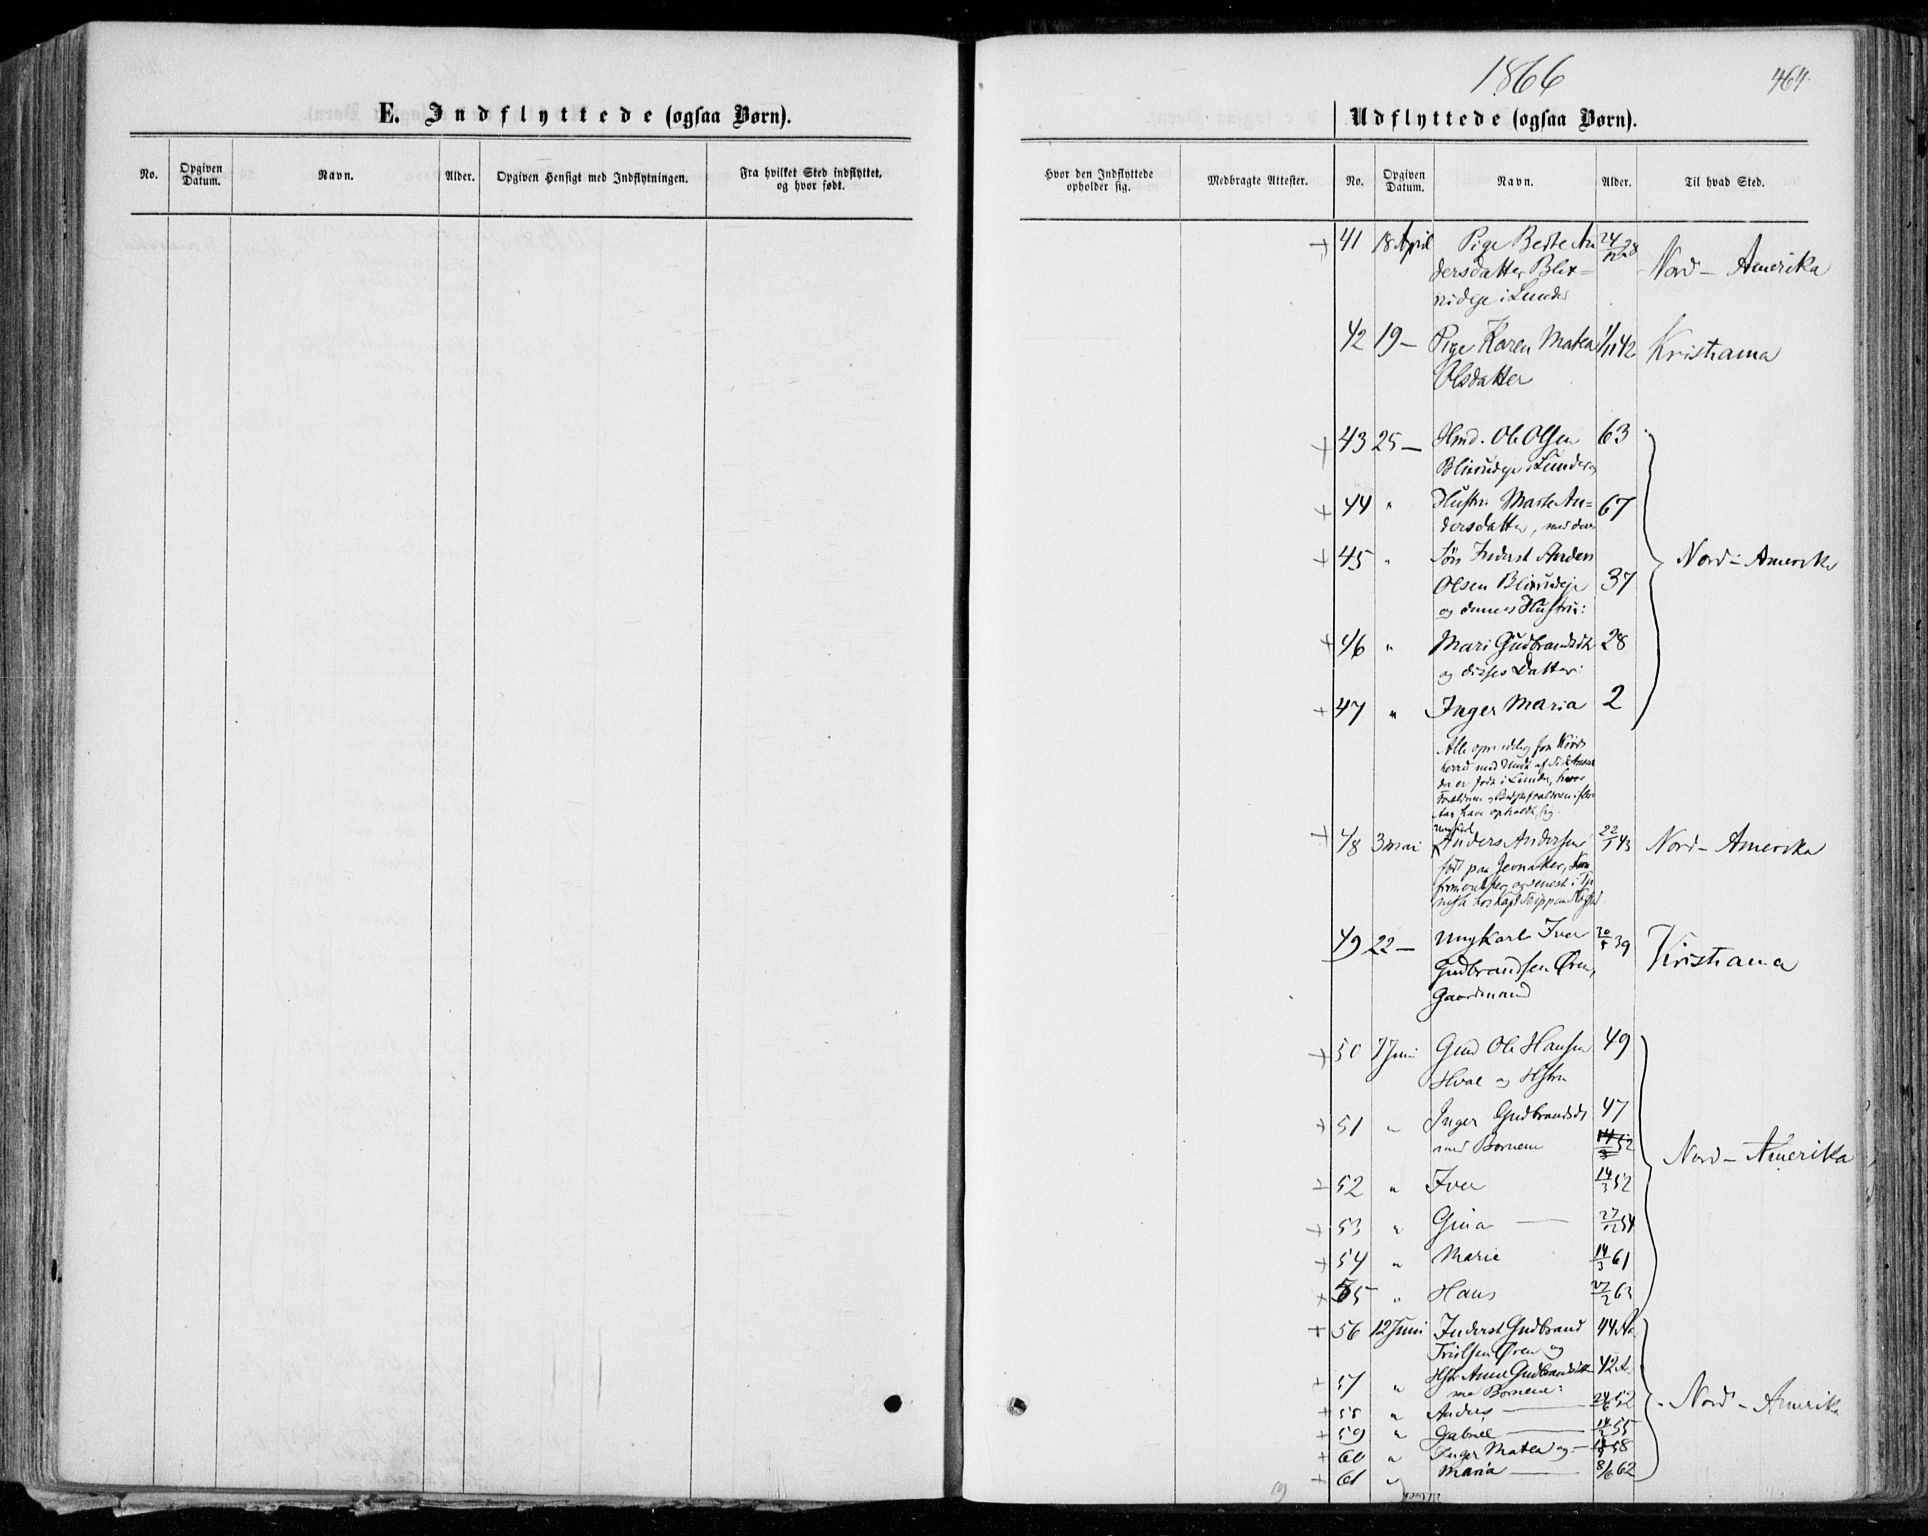 E. Indflyttede (ogsaa Børn).
No.
Opgiven Datum.
Navn.
Alder.
Opgiven Hensigt med Indflytningen.
Fra hvilket Sted indflyttet, og hvor født.
1866
464.
Udflyttede (ogsaa Børn).
Hvor den Indflyttede opholder sig.
Medbragte Attester.
No.
Opgiven Datum.
Navn.
Alder.
Til hvad Sted.
+ 41 18 April Pige Berte An 24/12 28 Nord-Amerika
dersdatter Blix=
rudeje i Lunder
42 19 — Pige Karen Matea 1/11 42 Kristiania
Olsdatter
+ 43 25 — Hmd. Ole Olsen 63
Blixrudeje i Lunder og
+ 44 " Hustru Marte An= 67
dersdatter, med deres
+ 45 " Søn Inderst Anders
Olsen Blixrudeje 37 Nord-Amerika
og dennes Hustru:
+ 46 " Mari Gudbrandsdtr 28
og disses Datter:
+ 47 " Inger Maria 2
Alle oprindelig fra
herred med Undt. af
der er født i Lunder, hvor
Forældrene og
have opholdt sig.
Ungkarl
+ 48 3 Mai Anders Andersen 22/1 43 Nord-Amerika
født paa Jevnaker, Kon
firmeret her og senest i
hos Kapt.
49 22 — Ungkarl Iver 20/5 39 Kristiania
Gudbrandsen Øren,
Gaardmand
+ 50 7 Juni Gmd Ole Hansen 49
Hval og Hstru
+ 51 " Inger Gudbrandsdr 47
med Børnene 14/3 52 Nord-Amerika
+ 52 " Iver 14/3 52
+ 53 " Gina — 27/12 54
+ 54 " Marie 14/3 61
+ 55 " Hans 27/2 63
+ 56 12 Juni Inderst Gudbrand 44 Aa
Trulsen Øren og
+ 57 " Hstr Anne Gudbrandsdtr 42 A.
med Børnene:
+ 58 " Anders — 24/6 52 Nord-Amerika
+ 59 " Gabriel — 14/2 55
+ 60 " Inger Matea og — 58
+ 61 " Maria — 8/6 62